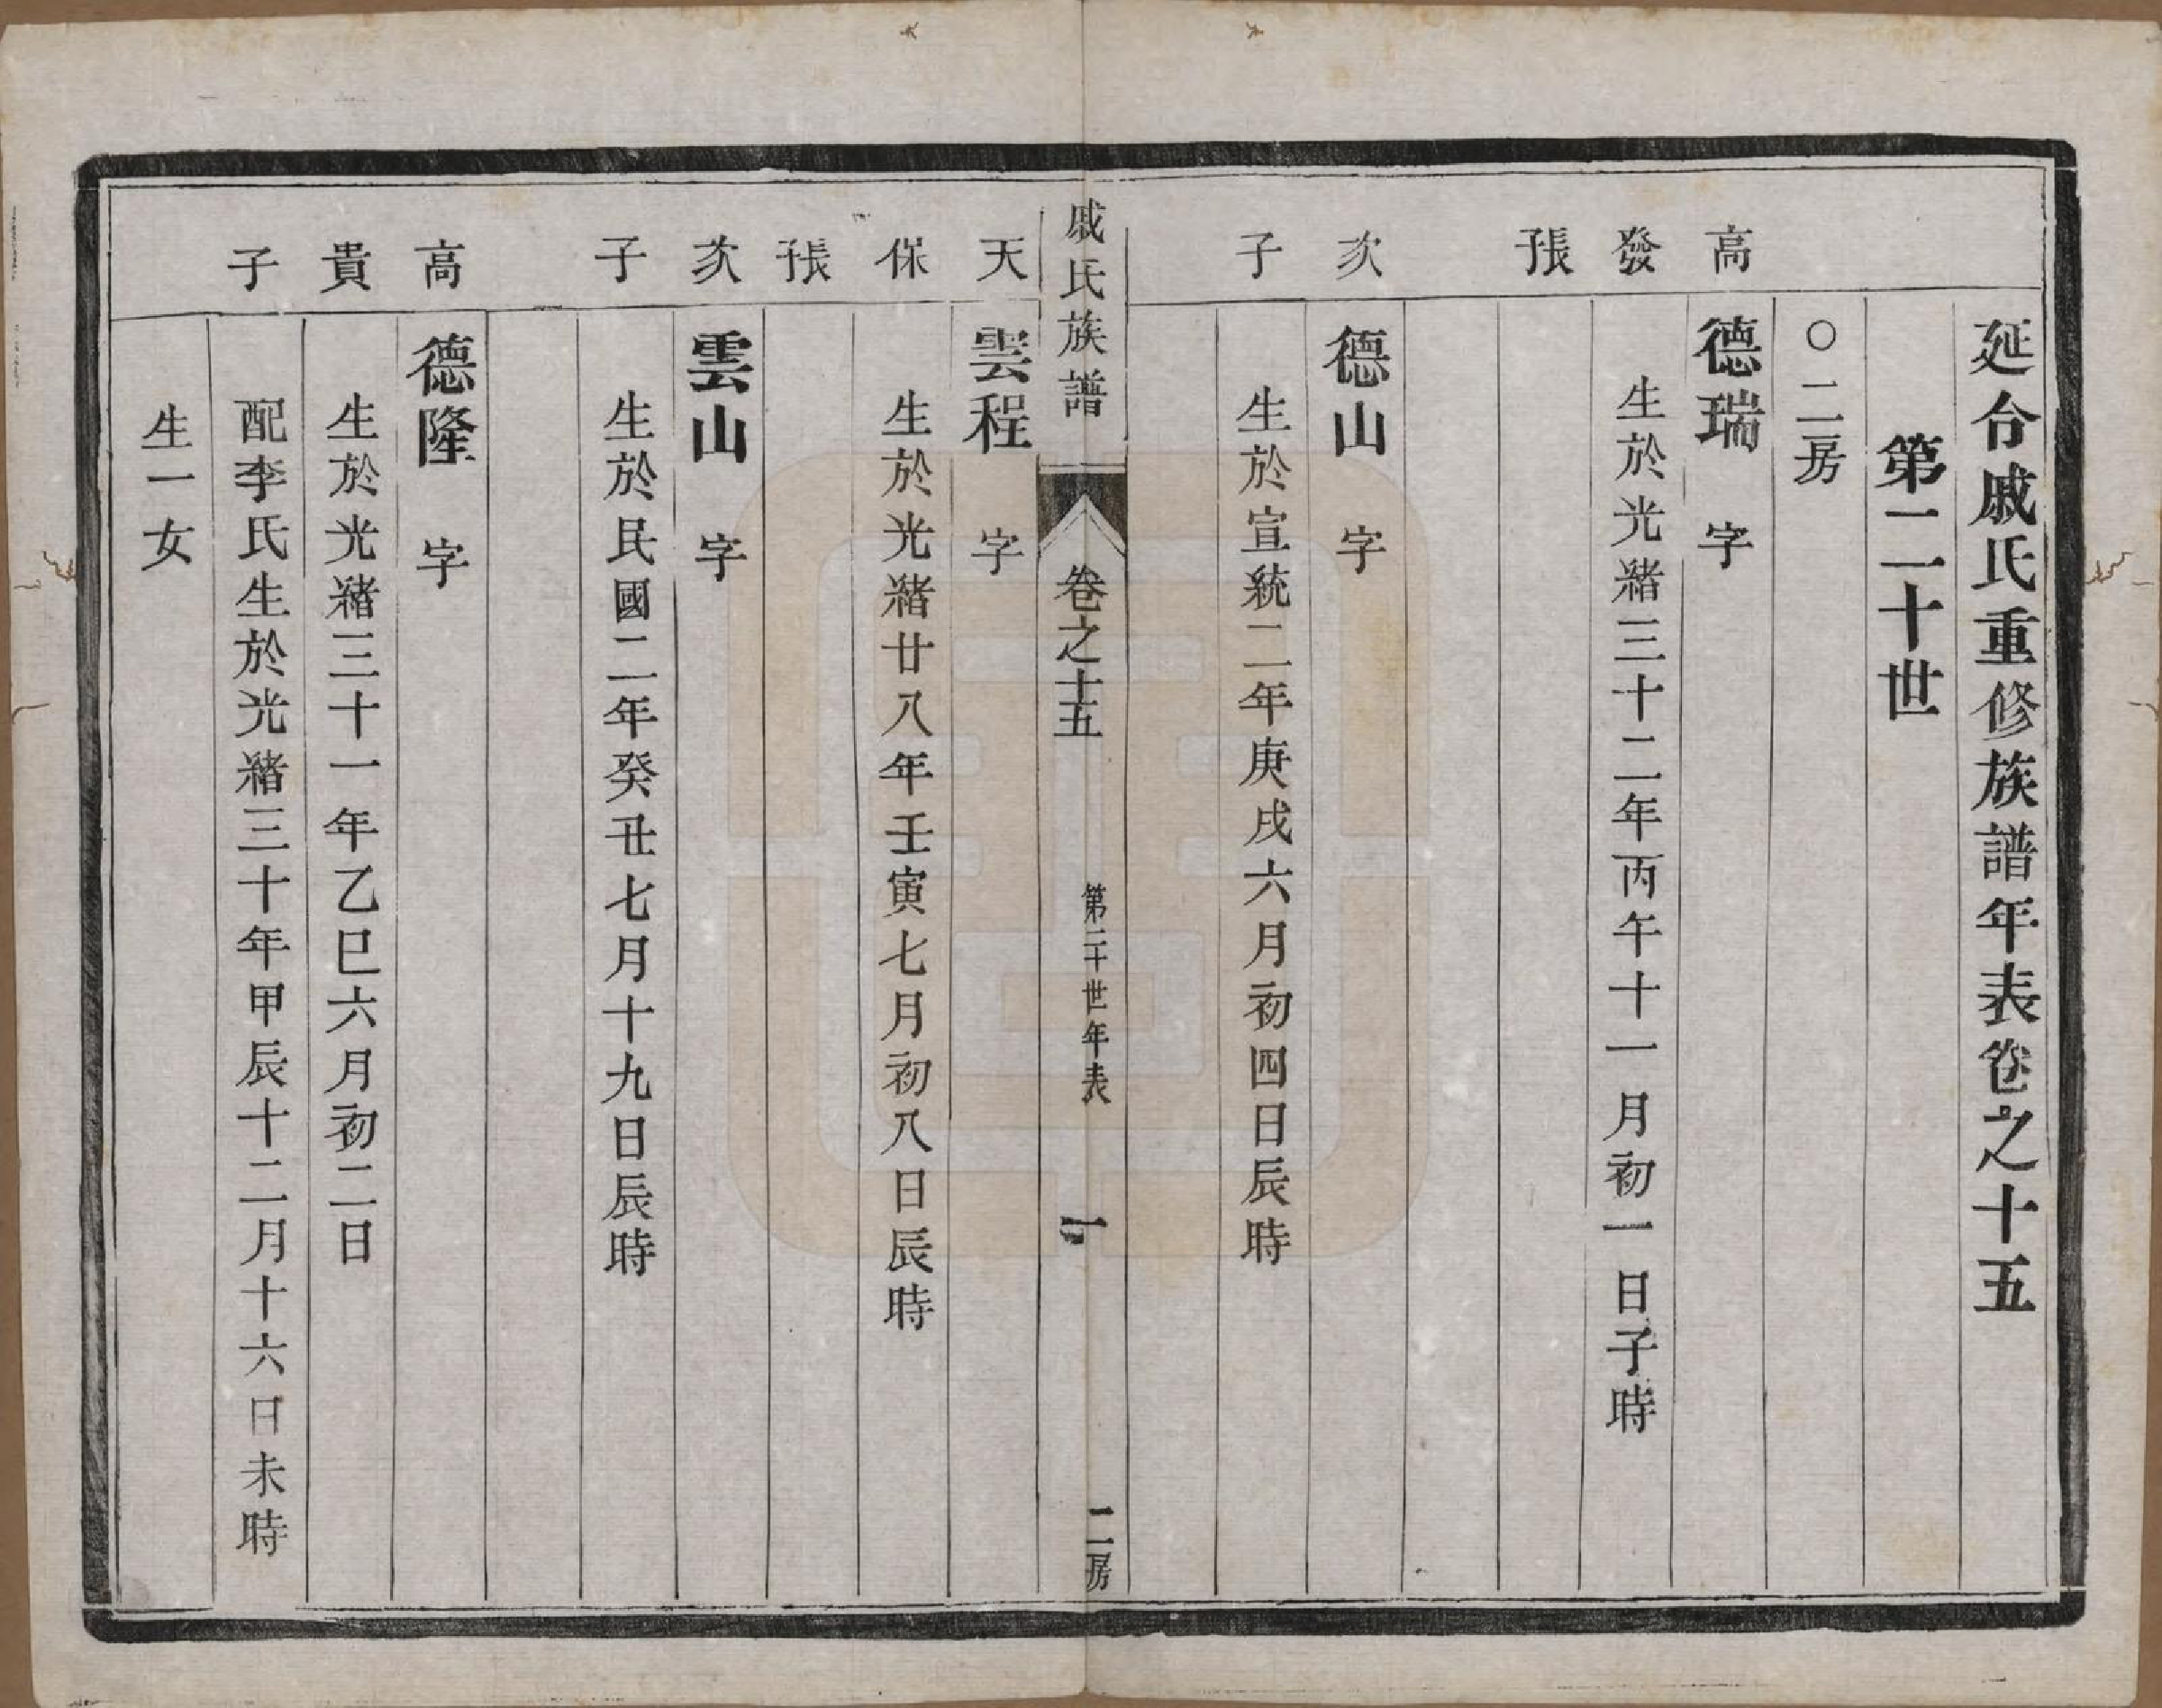 延合戚氏重修族譜年表卷之十五
第二十世
〇二房
高發長子
德瑞　字
生於光緒三十二年丙午十一月初一日子時
次子
德山　字
生於宣統二年庚戌六月初四日辰時
戚氏族譜　卷之十五　第二十世年表　一　二房
天保長子
雲程　字
生於光緒廿八年壬寅七月初八日辰時
次子
雲山　字
生於民國二年癸丑七月十九日辰時
高貴子
德隆　字
生於光緒三十一年乙巳六月初二日
配李氏生於光緒三十年甲辰十二月十六日未時
生一女